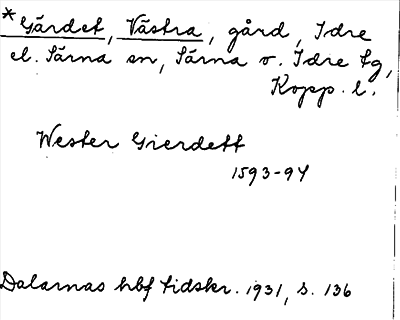 * Gärdet, Västra, gård, Idre
el. Särna sn, Särna o. Idre tg,
Kopp. l.
Wester Gierdett
1593-94
Dalarnas hbf tidskr. 1931, s. 136